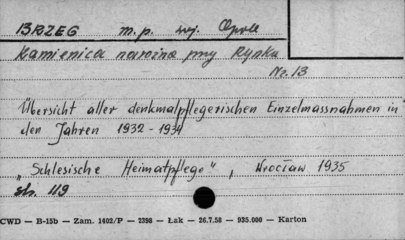 BRZEG m.p. woj. Opole
Kamienica narożna przy Rynku
Nr. 13
Übersicht aller denkmalpflegerischen Einzelmassnahmen in
den Jahren 1932 - 1934
"Schlesische Heimatpflege", Wrocław 1935
str. 119
CWD — B-15b — Zam. 1402/P — 2398 — Łak — 26.7.58 — 935.000 — Karton